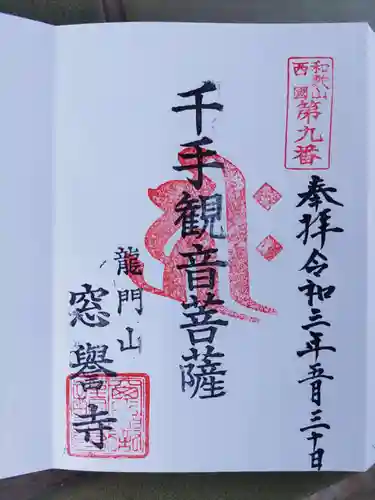 和歌山
西國
第九番
奉拝令和三年五月三十日
千手観音菩薩
龍門山
窓譽寺